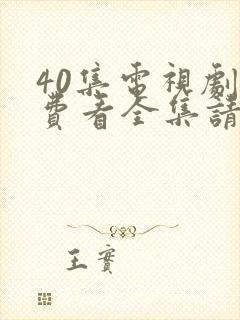 40集電視劇
費看全集請
王實